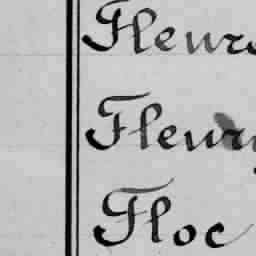 Fleury
Fleury
Floc